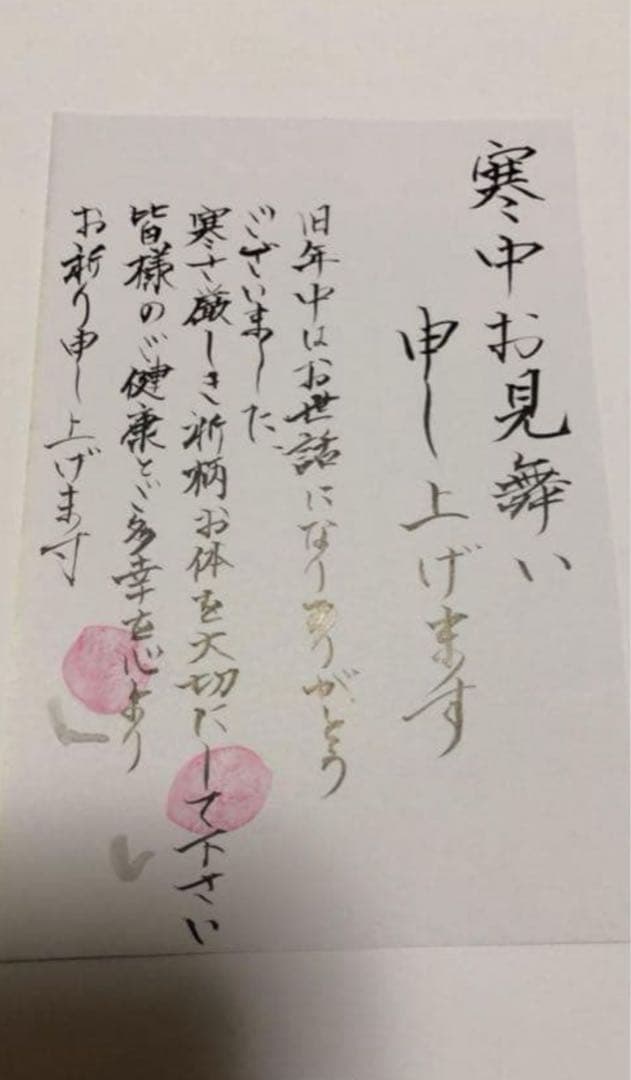 寒中お見舞い
申し上げます
旧年中はお世話になりありがとう
ございました
寒さ厳しき折柄お体を大切にして下さい
皆様のご健康とご多幸を心より
お祈り申し上げます